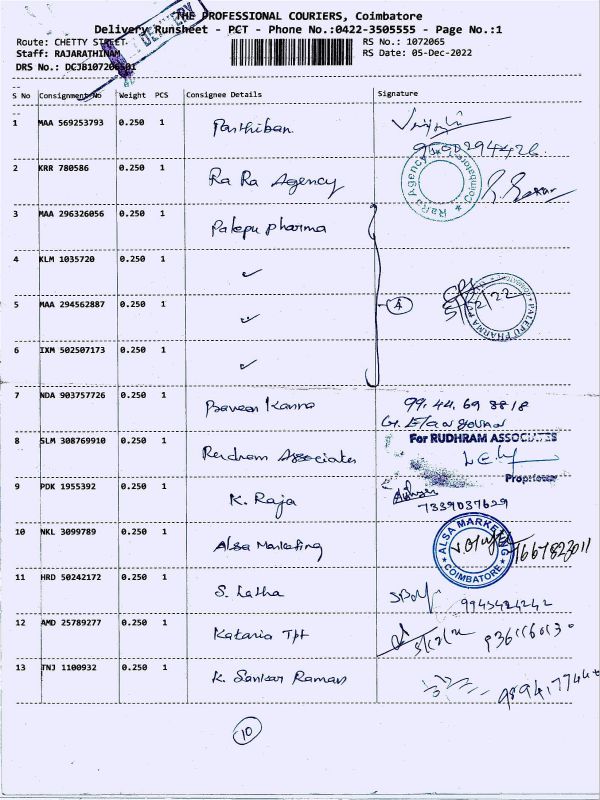 THE PROFESSIONAL COURIERS, Coimbatore
Delivery Runsheet - PCT - Phone No.:0422-3505555 - Page No.:1
DELIVERY
Route: CHETTY STREET
RS No.: 1072065
Staff: RAJARATHINAM
RS Date: 05-Dec-2022
DRS No.:
S No Consignment No Weight PCS Consignee Details Signature
1 MAA 569253793 0.250 1 Parthiban
2 KRR 780586 0.250 1 Ra Ra Agency
RaRa Agency Coimbatore
3 MAA 296326056 0.250 1 Palepu pharma
4 KLM 1035720 0.250 1 ✓
4
5/12/22
PALEPU PHARMA
5 MAA 294562887 0.250 1 ✓
6 IXM 502507173 0.250 1 ✓
7 NDA 903757726 0.250 1 Praveen Kanna 99.44.69 8818
8 SLM 308769910 0.250 1 Rudhram Associates
For RUDHRAM ASSOCIATES
Proprietor
9 PDK 1955392 0.250 1 K. Raja
7339037629
10 NKL 3099789 0.250 1 Alsa Marketing
ALSA MARKETING COIMBATORE
7667823011
11 HRD 50242172 0.250 1 S. Latha
12 AMD 25789277 0.250 1 Kataria Tpt
13 TNJ 1100932 0.250 1 K. Sankar Raman
10